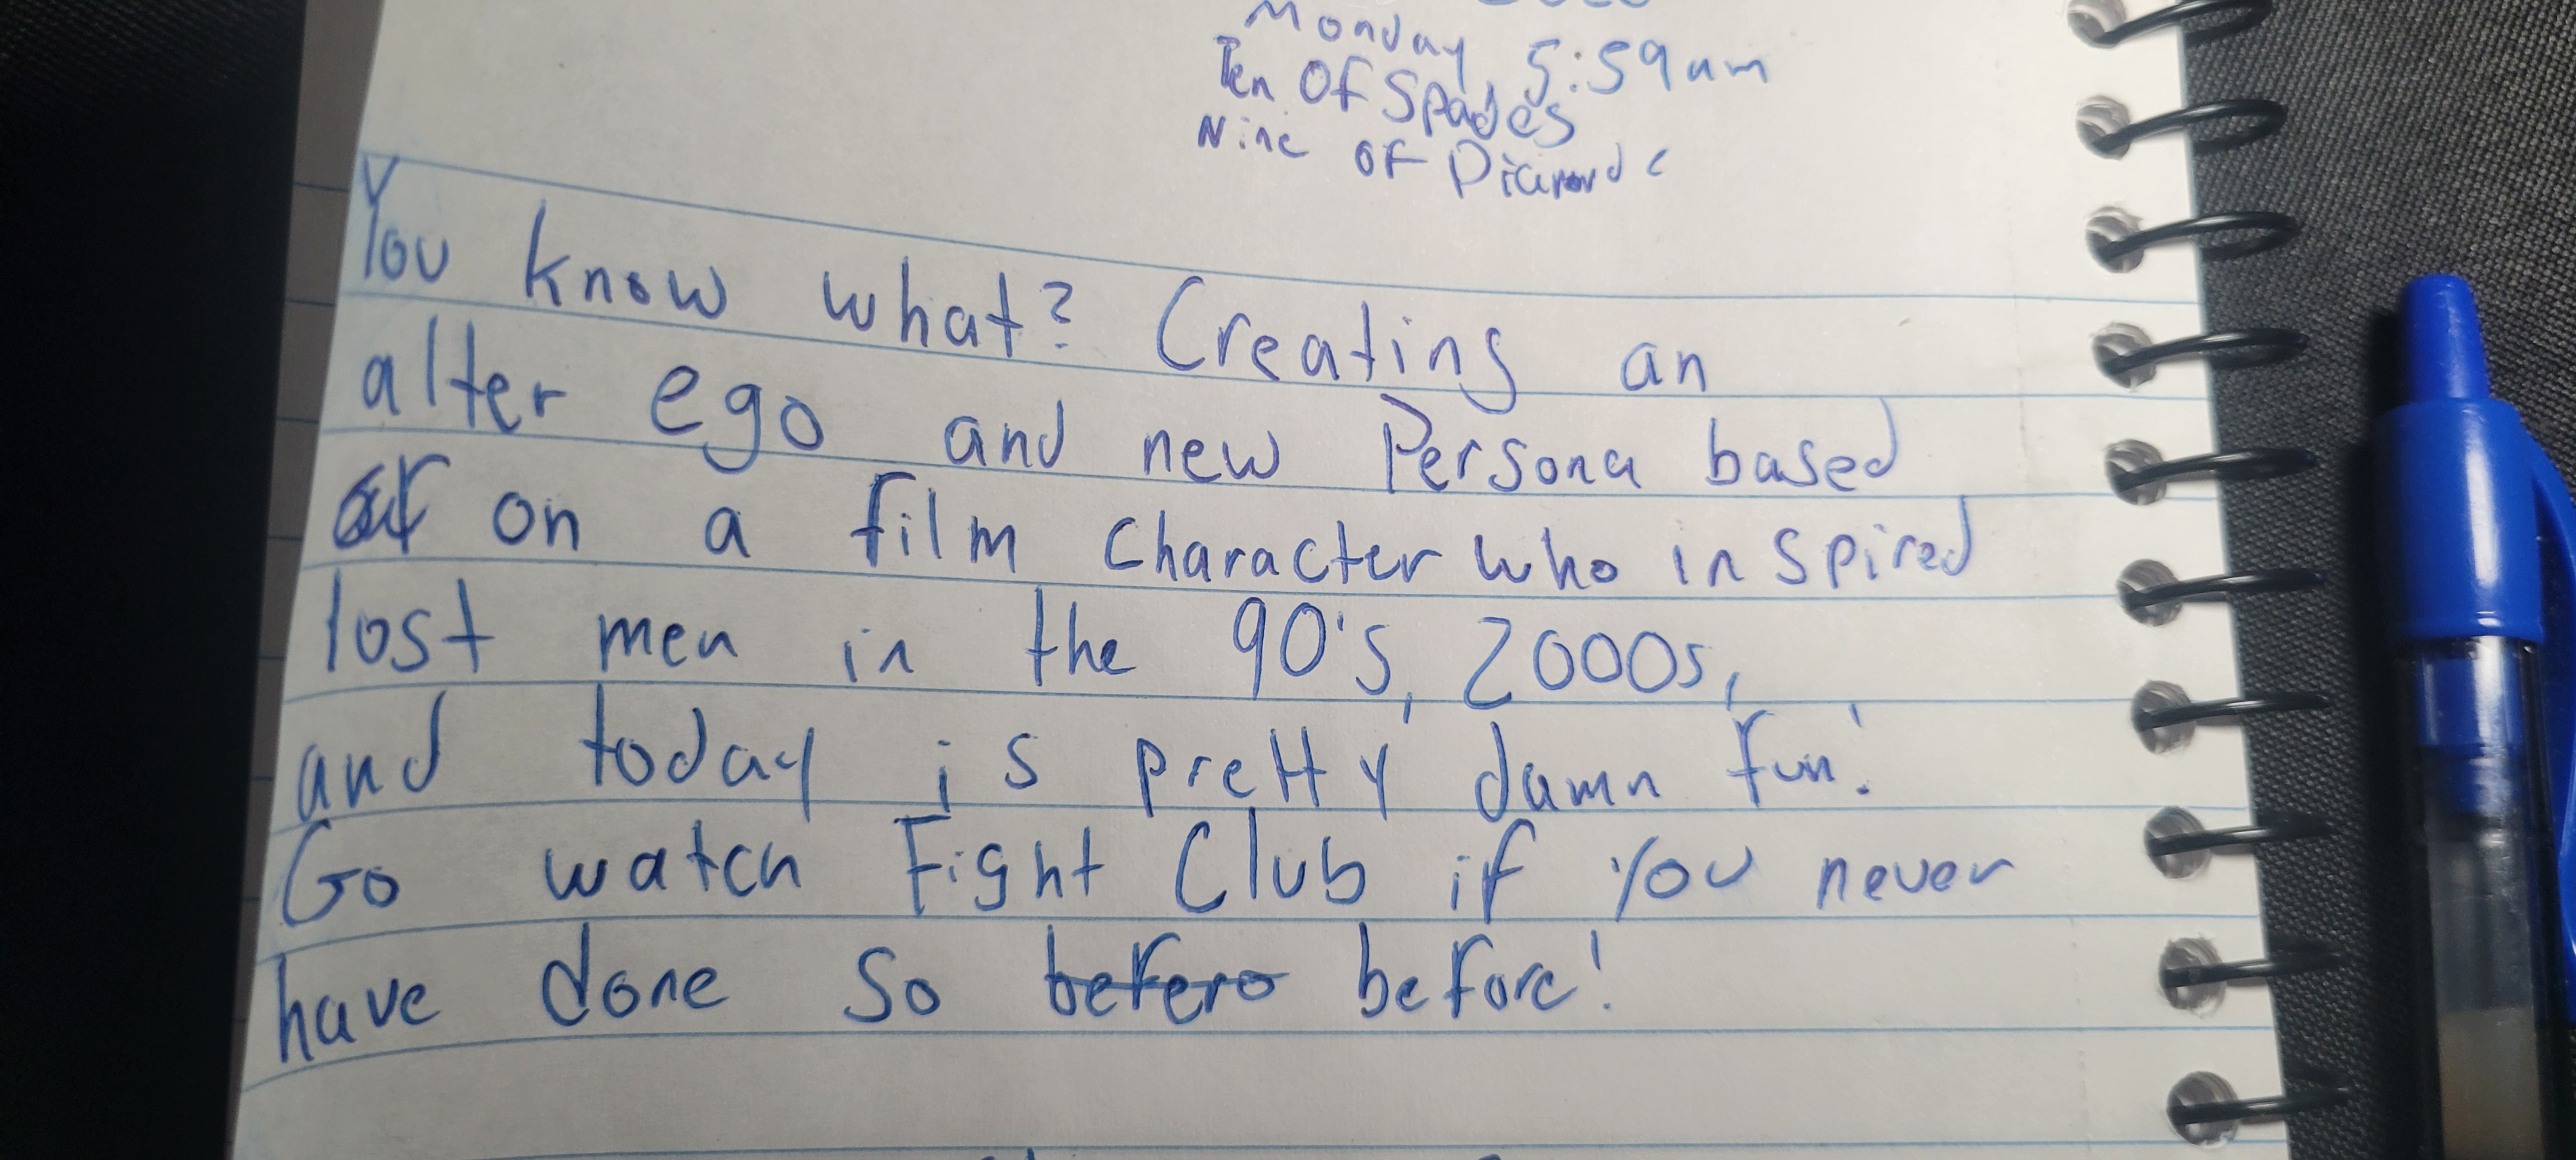 Monday 5:59am
Ten Of Spades
Nine OF Diamonds
You know what? Creating an
alter ego and new Persona based
on a film character who inspired
lost men in the 90's, 2000s,
and today is pretty damn fun!
Go watch Fight Club if you never
have done so befero before!